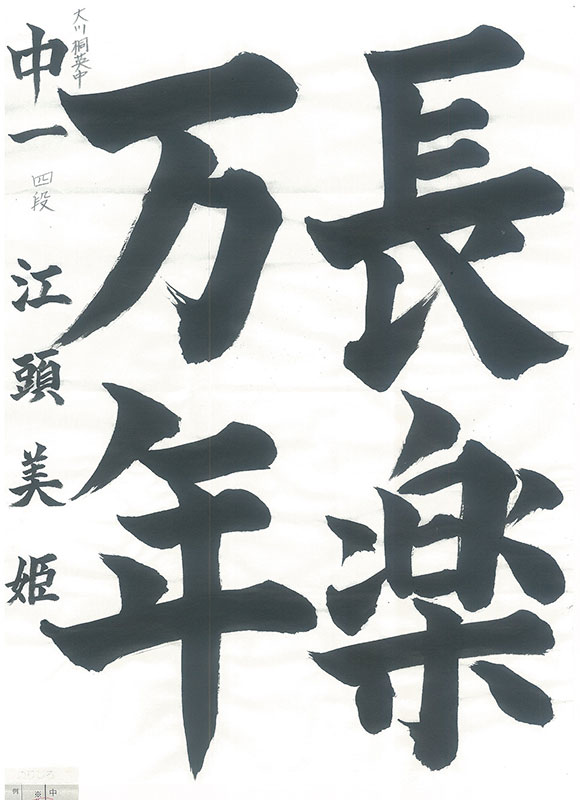 長楽
万年
大川桐英中
中一 四段 江頭美姫
例 ※ 中